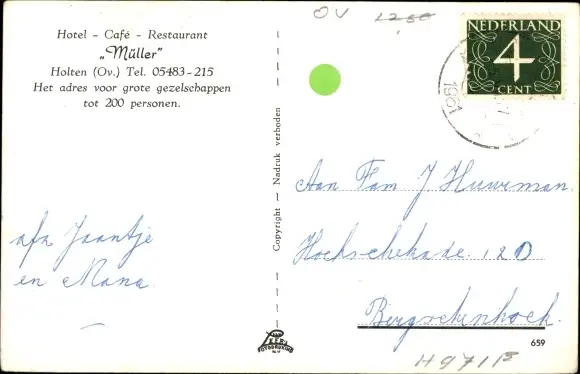 Hotel - Café - Restaurant
„Müller”
Holten (Ov.) Tel. 05483-215
Het adres voor grote gezelschappen
tot 200 personen.
OV 12.50
NEDERLAND
4
CENT
1961
Copyright — Nadruk verboden
Aan Fam J Huurman.
Hoekschekade 120
Bergschenhoek.
afz Jaantje
en Mana
659
H971B